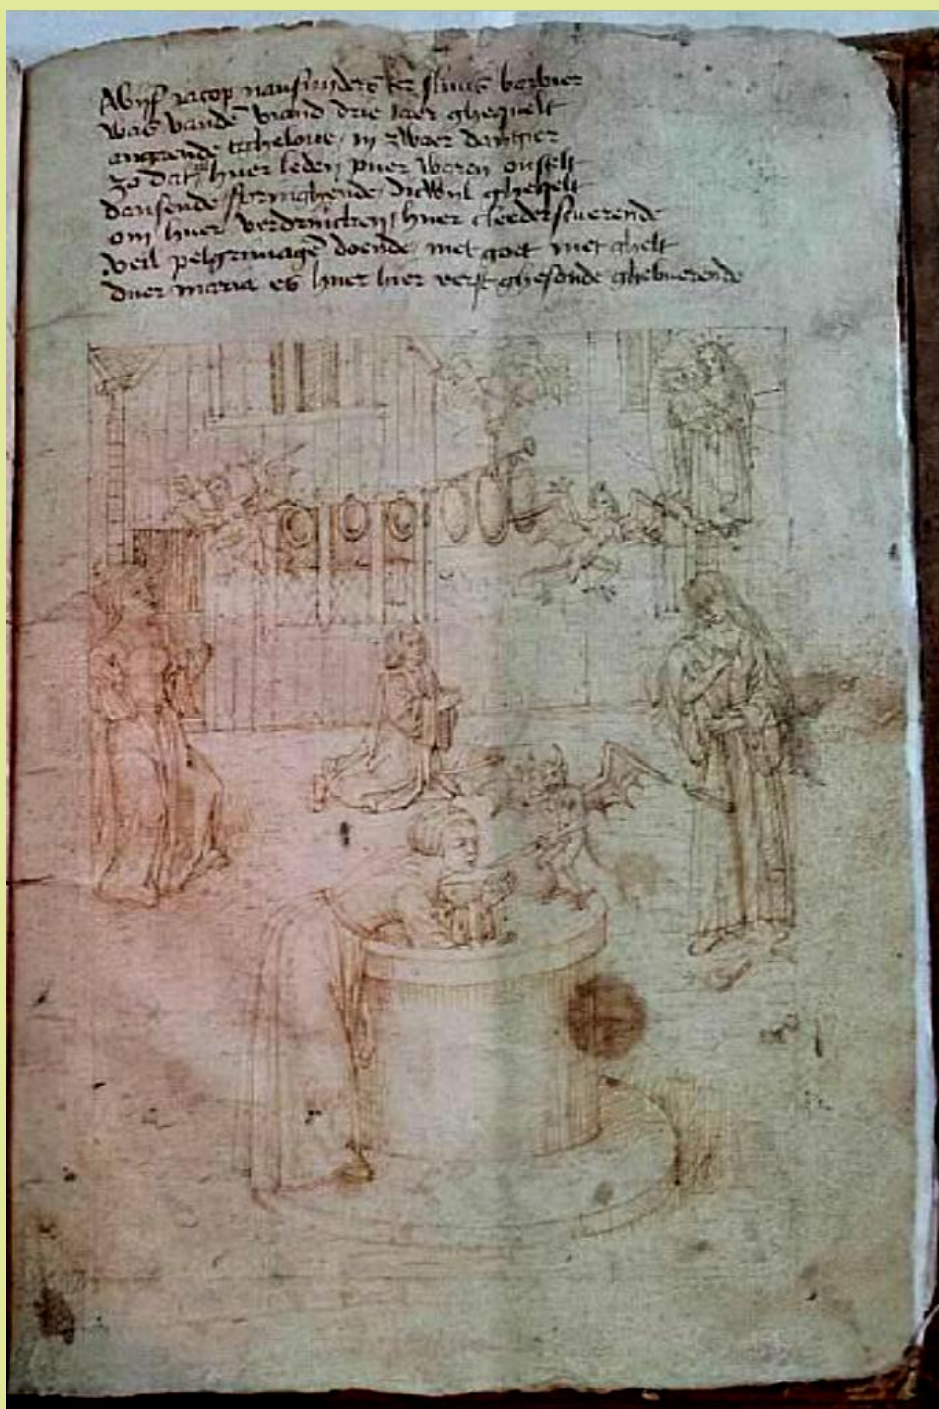 Twijf jacop vansnyders ter sluus barbier
was vanden viand drie jaer ghequelt
angaende tghelove in zwaer dangier
zo dat huer leden puer waren onstelt
dansende springhende dicwyl ghequelt
om huer verdrincken huer cleeder scuerende
veil pelgrimagen doende met goet met ghelt
duer maria es huer hier verst ghesonde ghebuerende